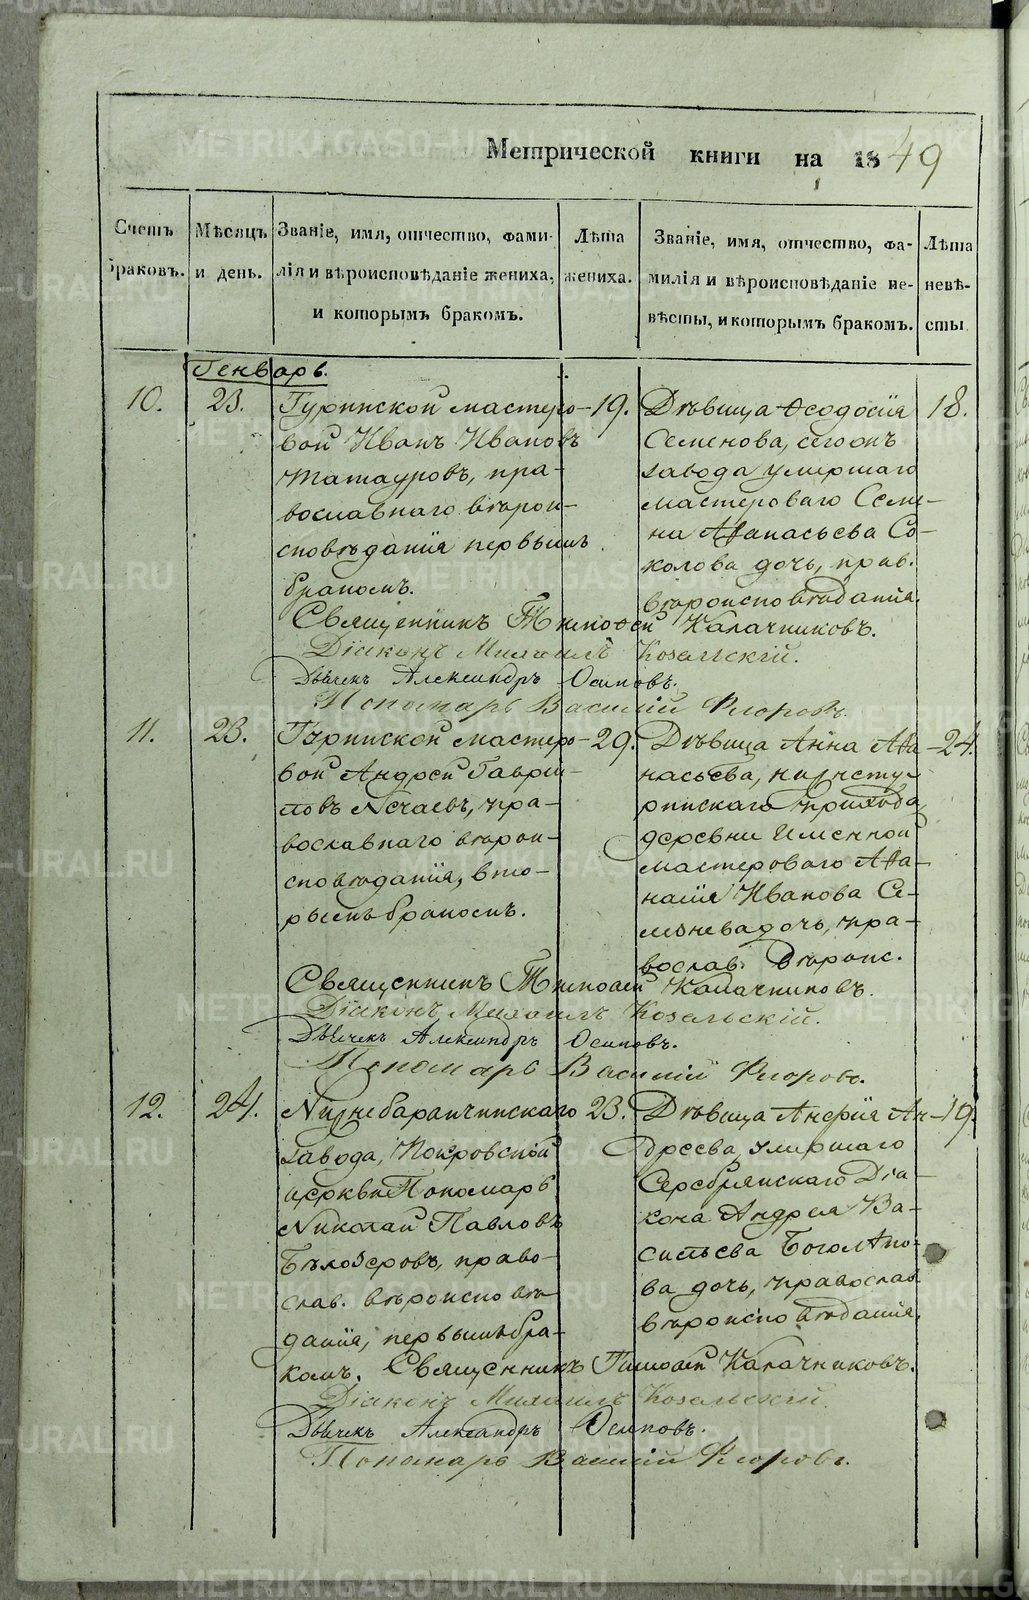 Метрической книги на 1849
Счетъ браковъ.
Мѣсяцъ и день.
Званіе, имя, отчество, фами-
лія и вѣроисповѣданіе жениха,
и которымъ бракомъ.
Лѣта жениха.
Званіе, имя, отчество, фа-
милія и вѣроисповѣданіе не-
вѣсты, и которымъ бракомъ.
Лѣта невѣ-
сты
Генварь.
10.
23.
Туринской мастеро-
вой Иванъ Ивановъ
Татауровъ, пра-
вославнаго вѣрои-
сповѣданія первымъ
бракомъ.
19.
Дѣвица Ѳеодосія
Семенова, сегожъ
завода умершаго
мастероваго Семе-
на Аѳанасьева Со-
колова дочь, прав.
вѣроисповѣданія.
18.
Священникъ Тимоѳей Калачниковъ.
Діаконъ Михаилъ Козельскій.
Дьячекъ Александръ Осиповъ.
Пономарь Василій Флоровъ.
11.
23.
Туринской мастеро-
вой Андрей Гаври-
ловъ Нечаевъ, пра-
вославнаго вѣрои-
сповѣданія, вто-
рымъ бракомъ.
29.
Дѣвица Анна Аѳа-
насьева, нижнету-
ринскаго прихода,
деревни Именной
мастероваго Аѳа-
насія Иванова Се-
дочь, пра-
вослав. вѣроис.
24.
Священникъ Тимоѳей Калачниковъ.
Діаконъ Михаилъ Козельскій.
Дьячекъ Александръ Осиповъ.
Пономарь Василій Флоровъ.
12.
24.
Нижнебаранчинскаго
завода, Покровской
церкви Пономарь
Николай Павловъ
Бѣлозеровъ, право-
слав. вѣроисповѣ-
данія, первымъ бра-
комъ.
23.
Дѣвица Ан-
дреева, умершаго
Серебрянскаго Діа-
кона Андрея Ва-
сильева Боголѣпо-
ва дочь, православ
вѣроисповѣданія.
19.
Священникъ Тимоѳей Калачниковъ.
Діаконъ Михаилъ Козельскій.
Дьячекъ Александръ Осиповъ.
Пономарь Василій Флоровъ.
METRIKI.GASO-URAL.RU